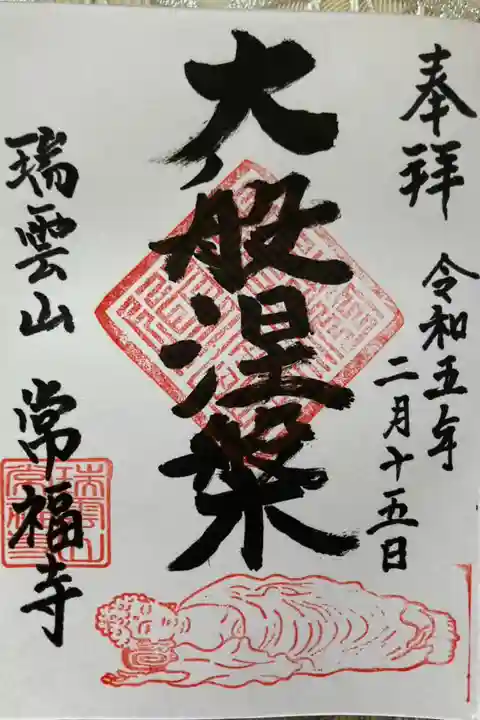 奉拝
令和五年
二月十五日
大般涅槃
瑞雲山 常福寺